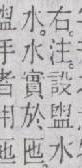 右。注。設盥水
水。水實於匜
盥手者